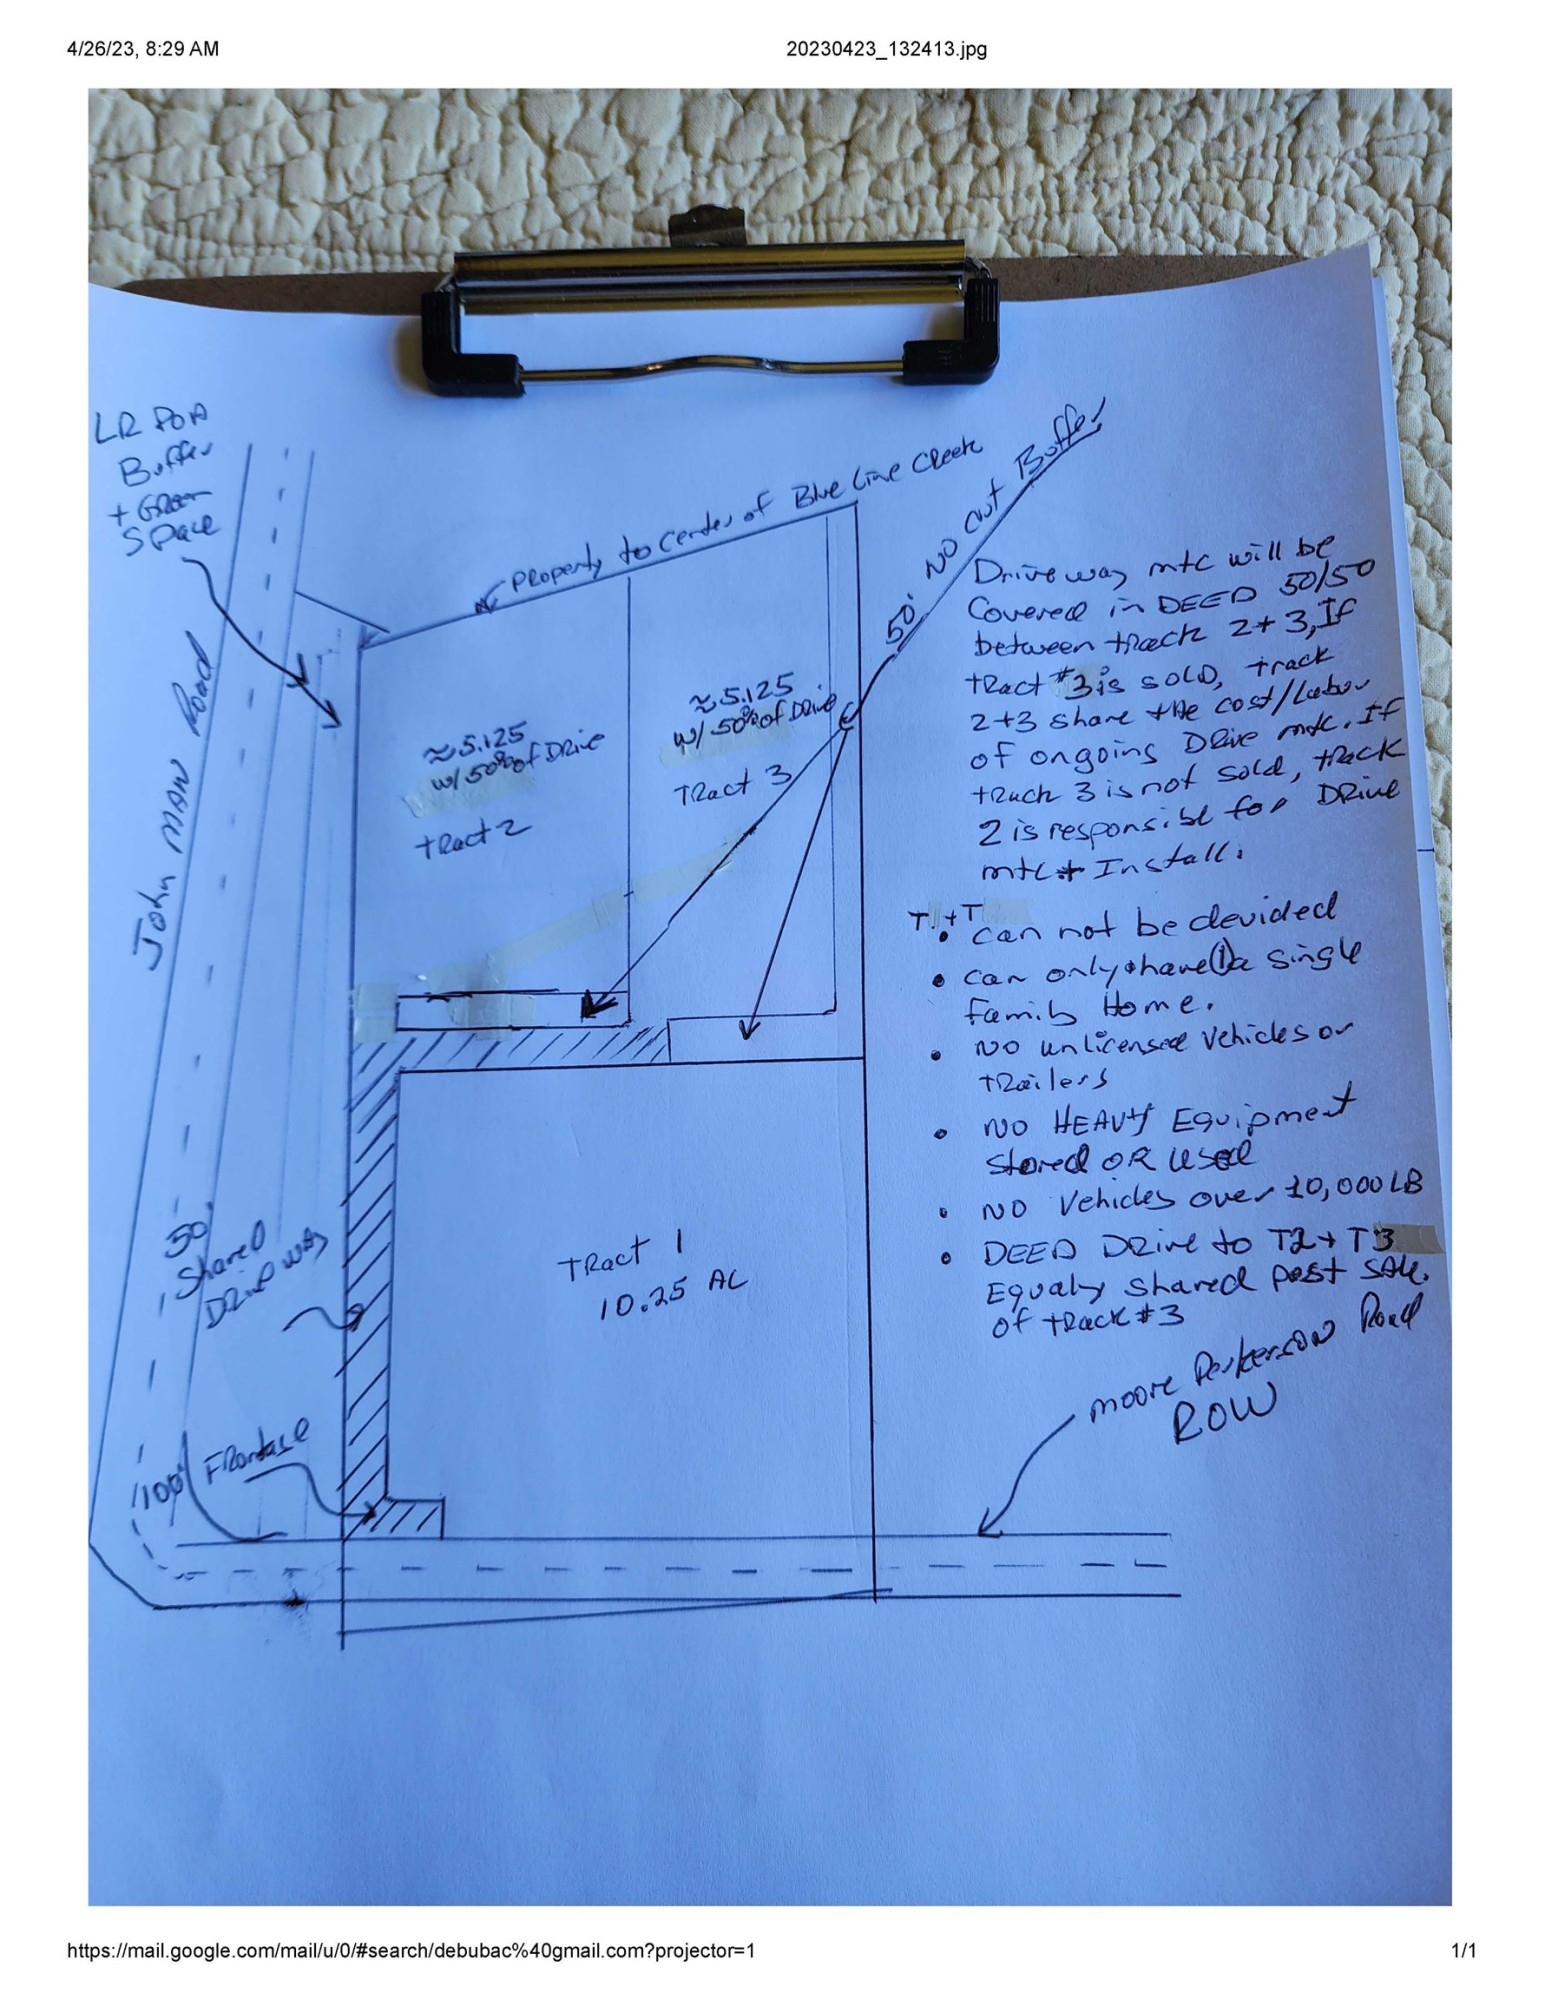 4/26/23, 8:29 AM
20230423_132413.jpg
LR POA
Buffer
+ Green
Space
Property to Center of Blue Line Creek
50' NO Cut Buffer
John MANN Road
≈5.125
w/ 50% of Drive
tRact 2
≈5.125
w/ 50% of Drive
TRact 3
Driveway mtc will be
Covered in DEED 50/50
between track 2+3, If
tRact #3 is SOLD, track
2+3 share the cost/Labor
of ongoing Drive mtc. If
track 3 is not sold, track
2 is responsible for Drive
mtc + Install.
T + T
• can not be devided
• can only have (1) a single
Family Home.
• NO unlicensed Vehicles or
tRailers
• NO HEAVY Equipment
Stored OR Used
• NO Vehicles over 10,000 LB
• DEED DRive to T2 + T3
Equaly Shared post SALE.
of tRack #3
50'
Shared
DRive way
TRact 1
10.25 AC
100' FRontage
moore Parkerson Road
ROW
https://mail.google.com/mail/u/0/#search/debubac%40gmail.com?projector=1
1/1